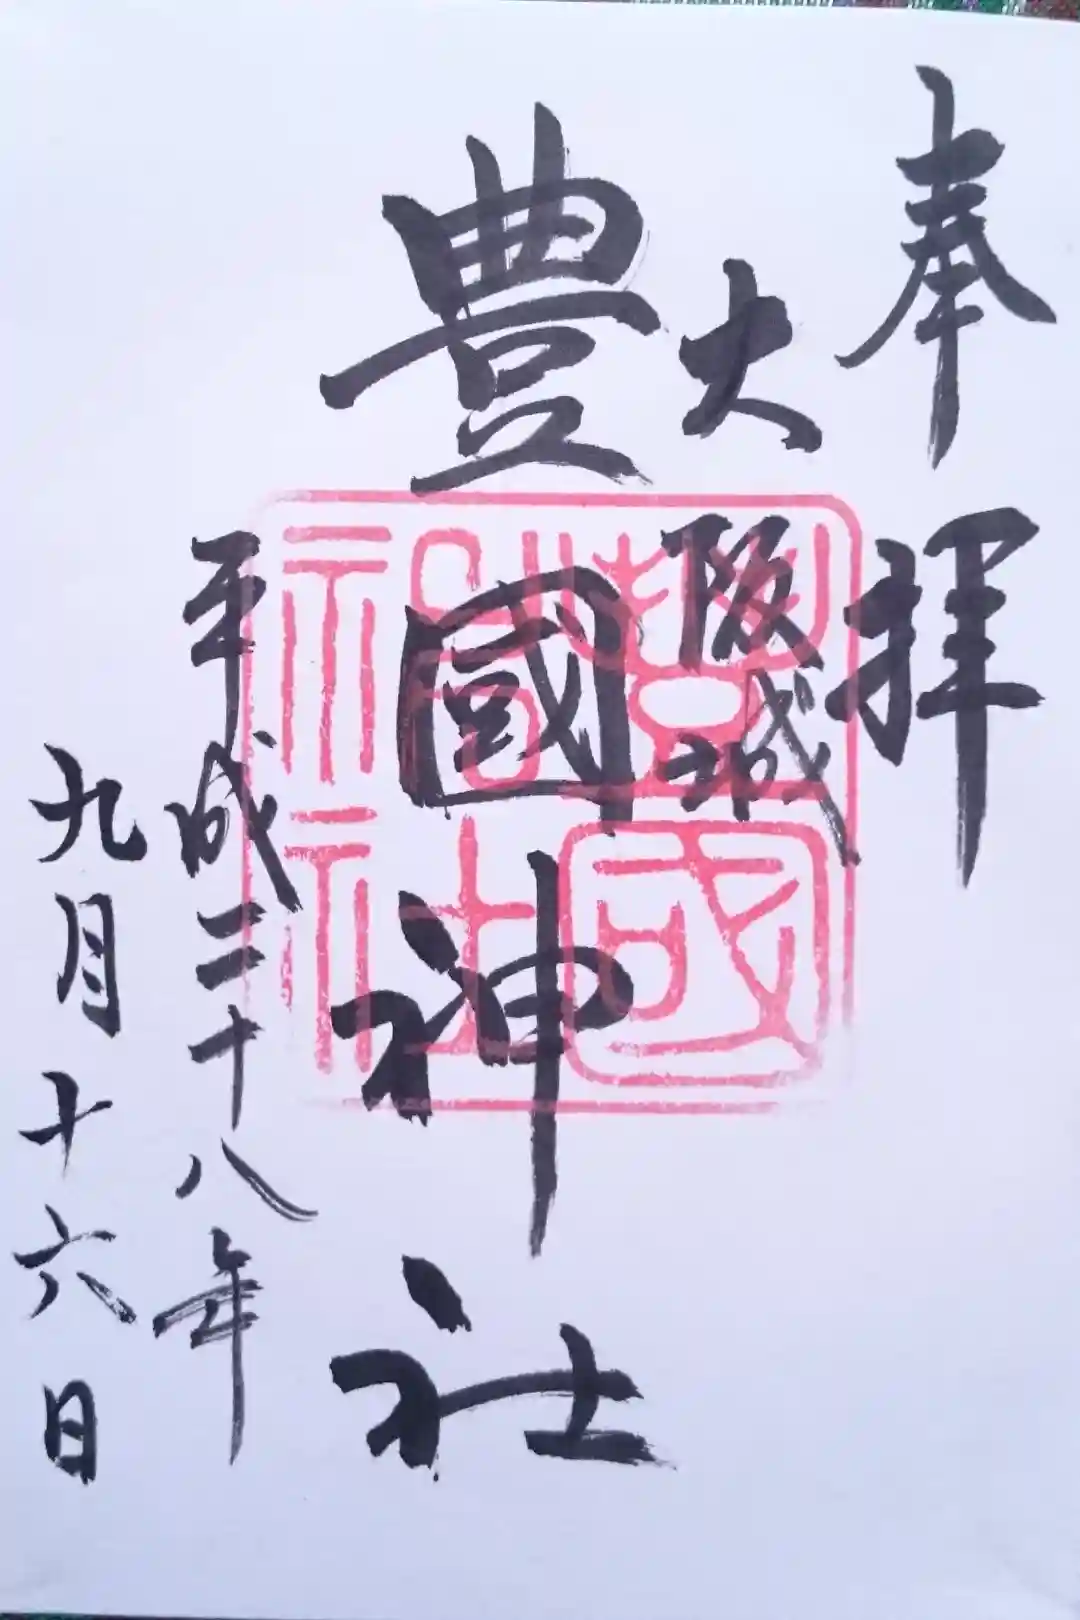 奉拝
大阪城
豊國神社
平成二十八年
九月十六日
豊國神社